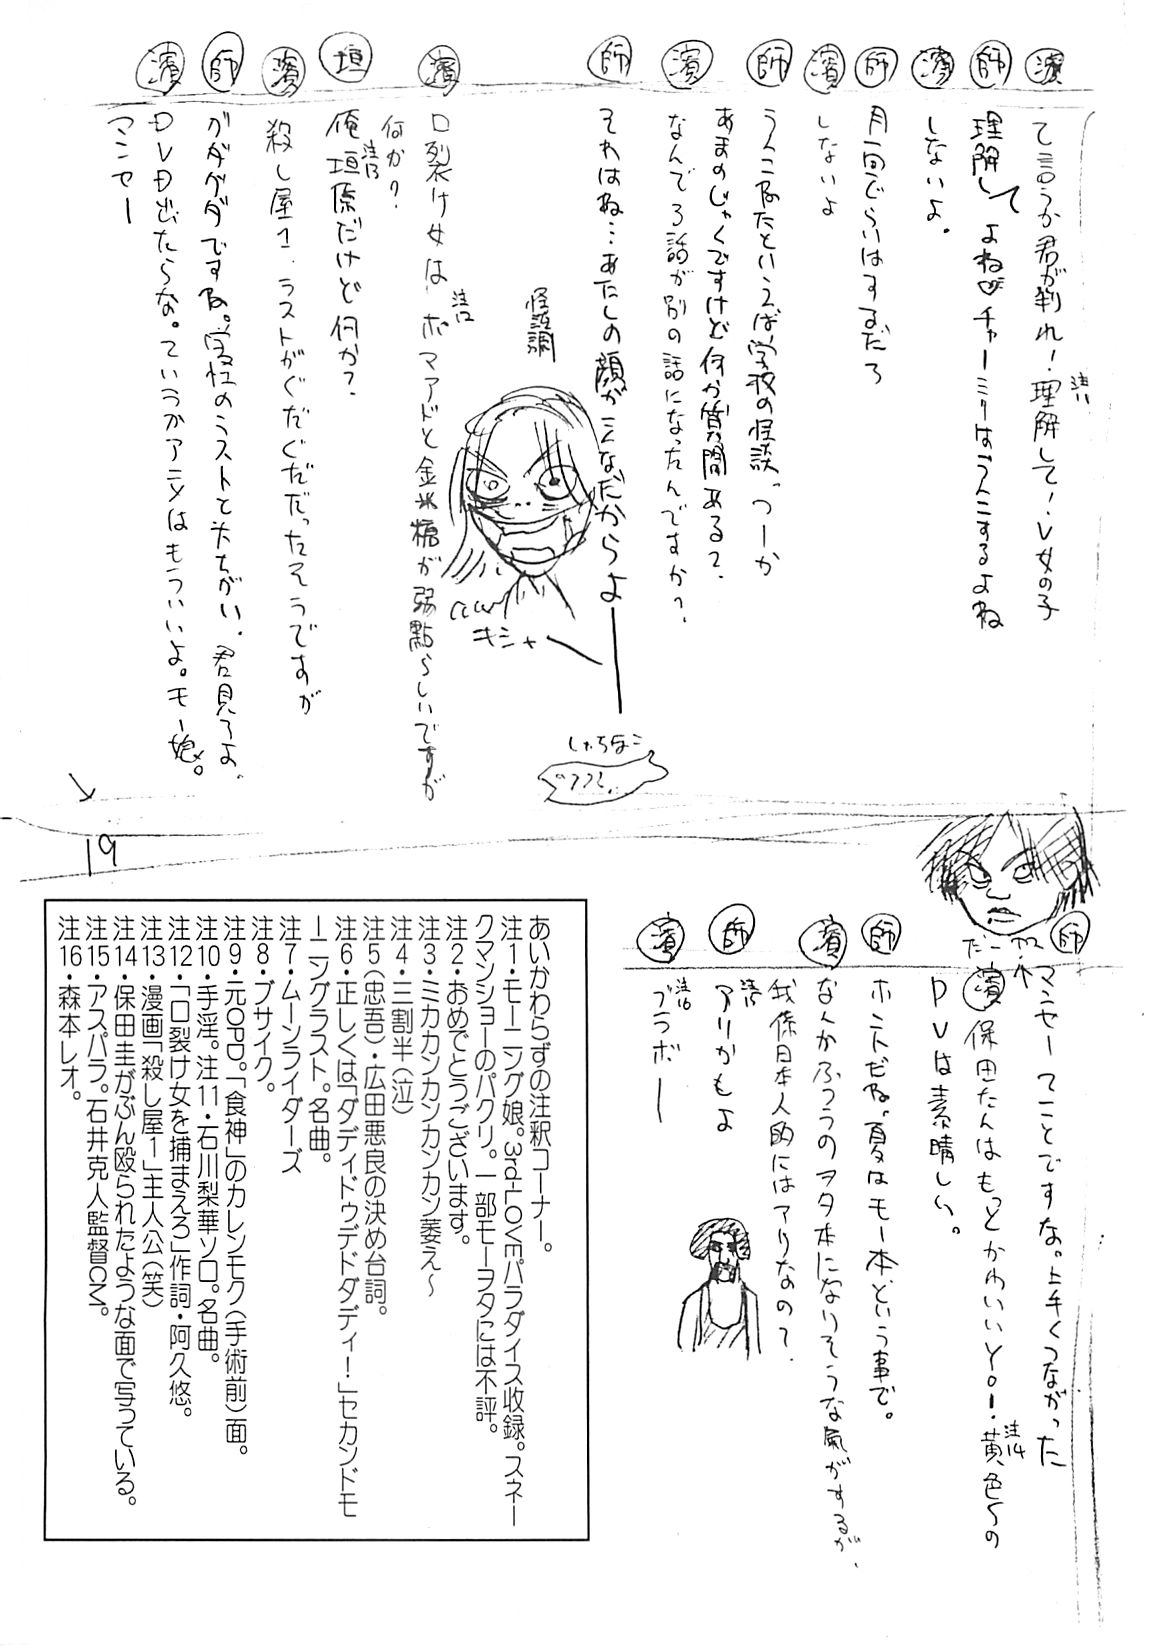 濱 て言うか君が判れ!理解して!>女の子
注11
師 理解してよね♡チャーミーはうんこするよね
濱 しないよ。
師 月一回ぐらいはするだろ
濱 しないよ
師 うんこネタといえば学校の怪談、つーか
あまのじゃくですけど何か質問ある?
濱 なんで3話が別の話になったんですか?
師 それはね…あたしの顔がこんなだからよ――
怪談調
キシャー
しゃちほこ
濱 口裂け女はポマアドと金米糖が弱點らしいですが
注12
何か?
垣 俺垣原だけど何か?
注13
濱 殺し屋1、ラストがぐだぐだだったそうですが
師 ガダグダですな。学校のラストと大ちがい、君見ろよ。
濱 DVD出たらな。ていうかアニメはもういいよ。モー娘。
マンセー
19
師 マンセーてことですな。上手くつながった
濱 保田たんはもっとかわいいYo!・黄色くの
注14
PVは素晴しい。
師 ホントだね。夏はモー本、という事で。
濱 なんかふつうのヲタ本になりそうな氣がするが、
我係日本人的にはアリなの?
師 アリかもよ
注15
濱 ブラボー
注16
あいかわらずの注釈コーナー。
注1・モーニング娘。3rd-LOVEパラダイス収録。スネー
クマンショーのパクリ。一部モーヲタには不評。
注2・おめでとうございます。
注3・ミカカンカンカンカン萎え~
注4・三割半(泣)
注5(忠吾)・広田悪良の決め台詞。
注6・正しくは「ダディドゥデドダディ!」セカンドモ
ーニングラスト。名曲。
注7・ムーンライダーズ
注8・ブサイク。
注9・元OPD。「食神」のカレンモク(手術前)面。
注10・手淫。注11・石川梨華ソロ。名曲。
注12・「口裂け女を捕まえろ」作詞・阿久悠。
注13・漫画「殺し屋1」主人公(笑)
注14・保田圭がぶん殴られたような面で写っている。
注15・アスパラ。石井克人監督CM。
注16・森本レオ。